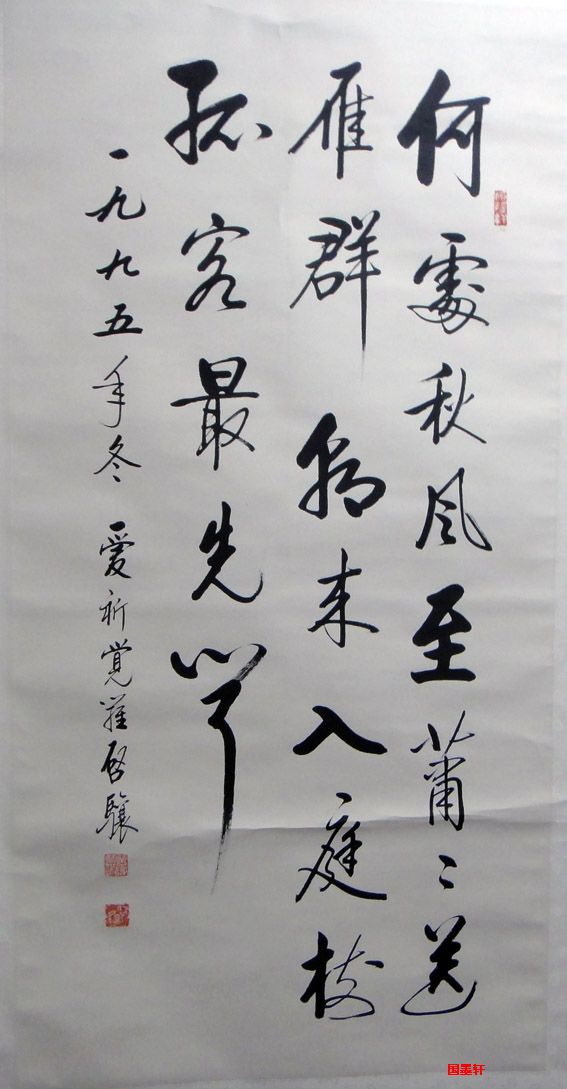 何處秋風至蕭〻送
雁群朝來入庭樹
孤客最先聞
一九九五年冬 愛新覺羅啟驤
国墨轩